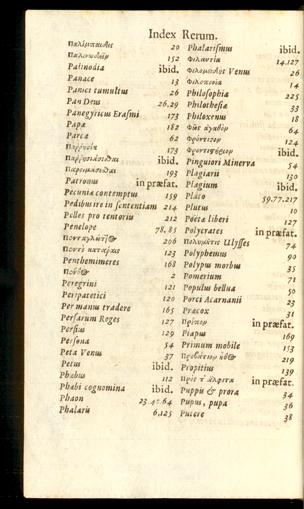 Index Rerum.
20
152
Palinodia ibid.
Panace 13
Panici tumultus 26
Pan Deus 26.29
Panegyricus Erasmi 173
Papæ 182
Parcæ 62
173
ibid.
193
Patronus in præfat.
Pecuniæ contemptus 159
Pedibus ire in sententiam 214
Pelles pro tentorio 212
Penelope 78, 85
206
123
Penthemimeres 168
2
Peregrini 121
Peripatetici 120
Per manus tradere 165
Persarum Reges 127
Persius 129
Persona 54
Peta Venus 37
Petus ibid.
Phæbus 112
Phœbi cognomina ibid.
Phaon 23.42.64
Phalaris 6,125
Phalarismus ibid.
Φιλαυτία 14.127
Venus 26
14
Philosophia 225
Philothesia 33
Philoxenus 18
64
124
ibid.
Pinguiori Minerva 54
Plagiarii 130
Plagium ibid.
Plato 59.77.217
Plutus 10
Poëtæ liberi 127
Polycrates in præfat.
Ulysses 74
Polyphemus 90
Polypus morbus 35
Pomerium 71
Populus bellua 50
Porci Acarnanii 23
Præcox 31
in præfat.
Priapus 169
Primum mobile 153
219
Propitius 139
in præfat.
Puppis & prora 34
Pupus, pupa 36
Putere 38